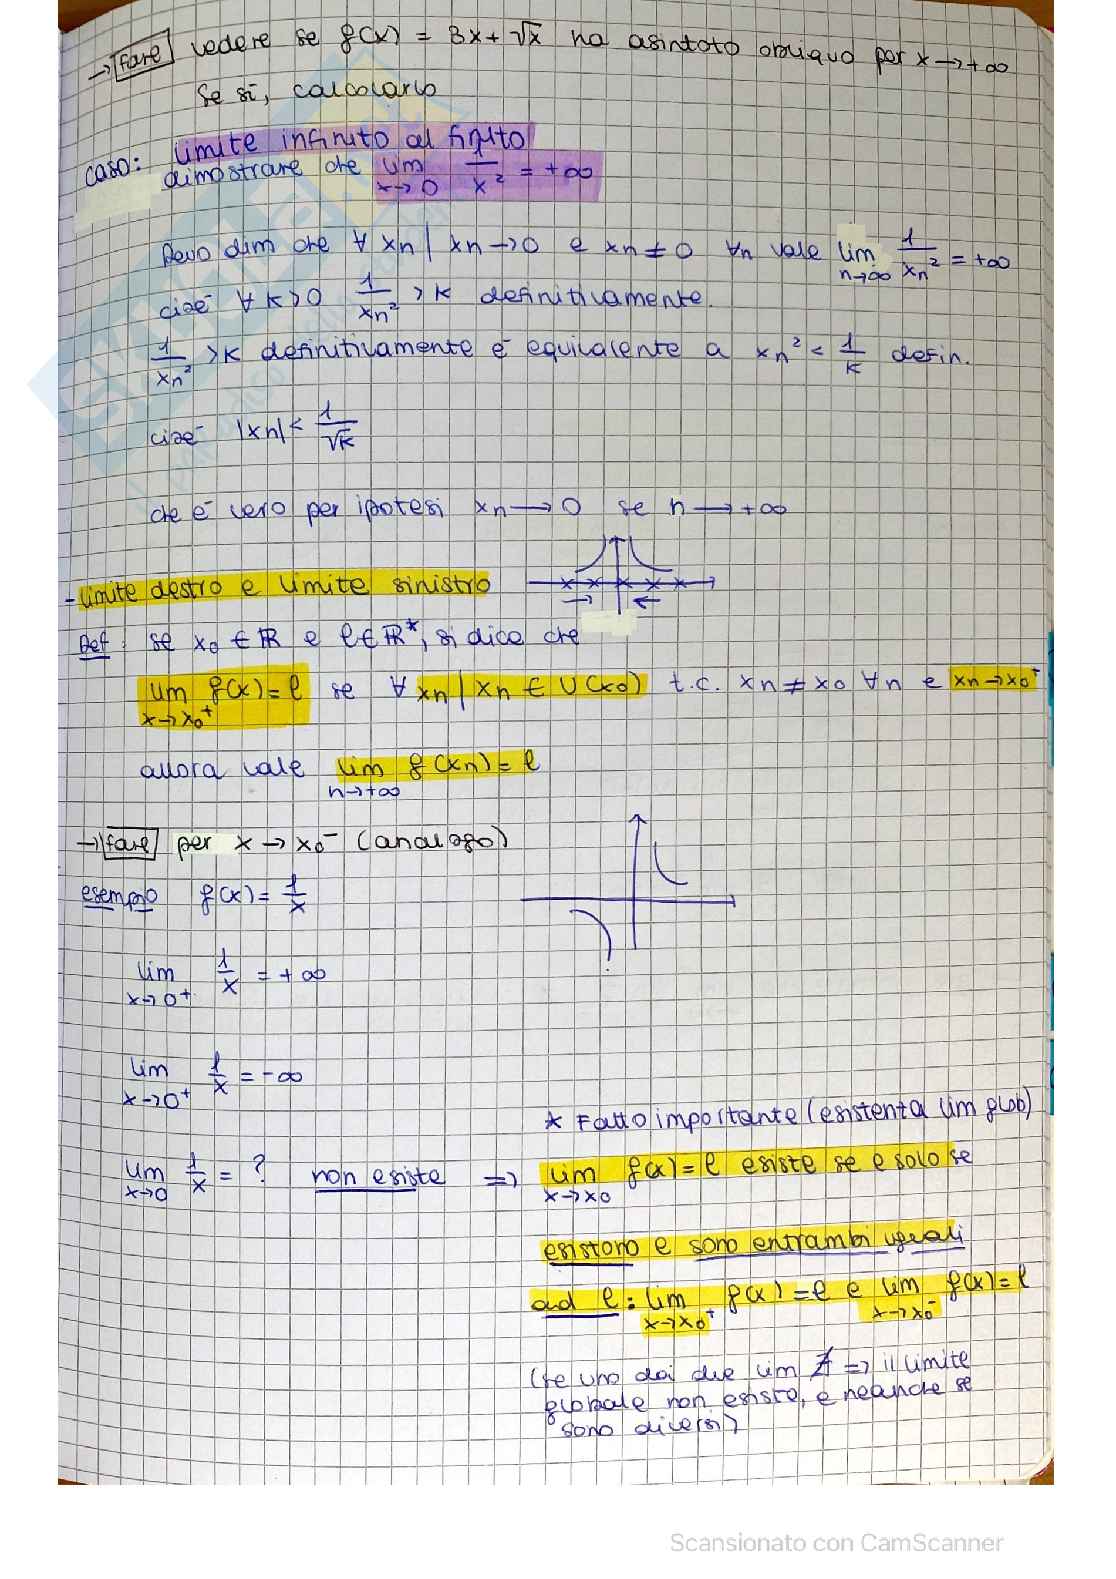 → fare vedere se f(x) = 3x + √x ha asintoto obliquo per x → +∞
Se sì, calcolarlo
caso: limite infinito al finito
dimostrare che lim x→0 1/x² = +∞
Devo dim che ∀ xn | xn → 0 e xn ≠ 0 ∀n vale lim n→∞ 1/xn² = +∞
cioè ∀ K > 0 1/xn² > K definitivamente.
1/xn² > K definitivamente è equivalente a xn² < 1/K defin.
cioè |xn| < 1/√K
che è vero per ipotesi xn → 0 se n → +∞
- limite destro e limite sinistro
Def: se x₀ ∈ ℝ e l ∈ ℝ*, si dice che
lim x→x₀⁺ f(x) = l se ∀ xn | xn ∈ U(x₀) t.c. xn ≠ x₀ ∀n e xn → x₀⁺
allora vale lim n→+∞ f(xn) = l
→ fare per x → x₀⁻ (analogo)
esempio f(x) = 1/x
lim x→0⁺ 1/x = +∞
lim x→0⁺ 1/x = -∞
* Fatto importante (esistenza lim glob)
lim x→0 1/x = ? non esiste ⇒ lim x→x₀ f(x) = l esiste se e solo se
esistono e sono entrambi uguali
ad l: lim x→x₀⁺ f(x) = l e lim x→x₀⁻ f(x) = l
(se uno dei due lim ∄ ⇒ il limite
globale non esiste, e neanche se
sono diversi)
Scansionato con CamScanner